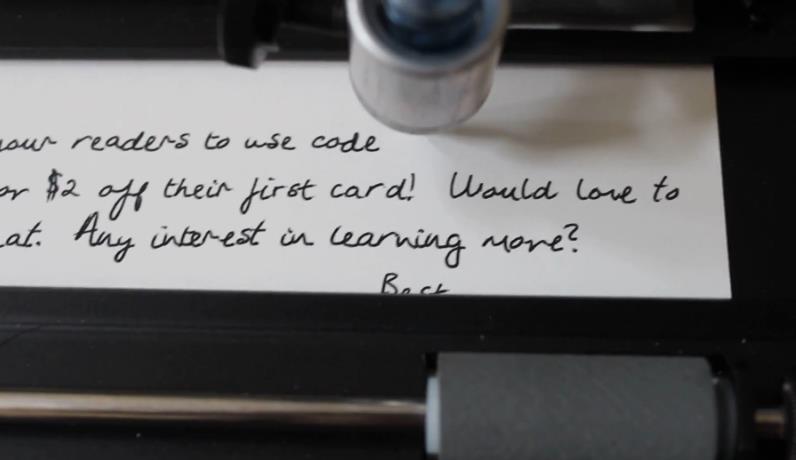 readers to use code
$2 off their first card! Would love to
Any interest in learning more?